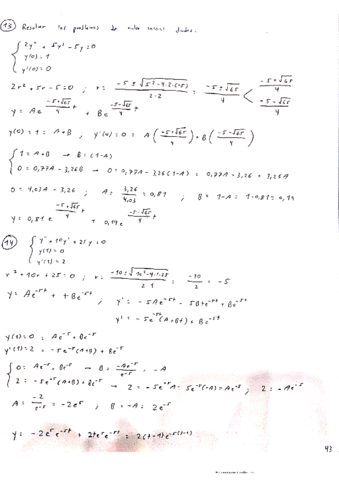 13) Resolver los problemas de valor inicial dados:
{ 2y'' + 5y' - 5y = 0
y(0) = 1
y'(0) = 0
2r² + 5r - 5 = 0 ; r = (-5 ± √(5² - 4·2·(-5))) / (2·2) = (-5 ± √65) / 4 < (-5 + √65) / 4
(-5 - √65) / 4
y = Ae^((-5+√65)/4 t) + Be^((-5-√65)/4 t)
y(0) = 1 = A + B , y'(0) = 0 = A((-5+√65)/4) + B((-5-√65)/4)
{ 1 = A + B → B = (1-A)
0 = 0,77A - 3,26B → 0 = 0,77A - 3,26(1-A) = 0,77A - 3,26 + 3,26A
0 = 4,03A - 3,26 ; A = 3,26/4,03 = 0,81 ; B = 1-A = 1-0,81 = 0,19
y = 0,81e^((-5+√65)/4 t) + 0,19e^((-5-√65)/4 t)
14) { y'' + 10y' + 25y = 0
y(1) = 0
y'(1) = 2
r² + 10r + 25 = 0 ; r = (-10 ± √(10² - 4·1·25)) / (2·1) = -10/2 = -5
y = Ae^(-5t) + tBe^(-5t) ; y' = -5Ae^(-5t) - 5Bte^(-5t) + Be^(-5t)
y' = -5e^(-5t)(A+Bt) + Be^(-5t)
y(1) = 0 = Ae^(-5) + Be^(-5)
y'(1) = 2 = -5e^(-5)(A+B) + Be^(-5)
{ 0 = Ae^(-5) + Be^(-5) → B = -Ae^(-5)/e^(-5) = -A
2 = -5e^(-5)(A+B) + Be^(-5) → 2 = -5e^(-5)A - 5e^(-5)(-A) - Ae^(-5) ; 2 = -Ae^(-5)
A = -2/e^(-5) = -2e^5 ; B = -A = 2e^5
y = -2e^5e^(-5t) + 2te^5e^(-5t) = 2(t-1)e^(-5(t-1))
43